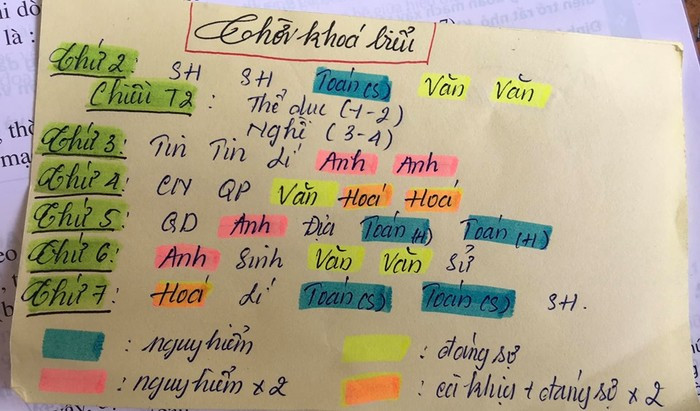 Thời khoá biểu
Thứ 2: SH SH Toán(S) Văn Văn
Chiều T2: Thể dục (1-2)
Nghề (3-4)
Thứ 3: Tin Tin Lí Anh Anh
Thứ 4: CN QP Văn Hoá Hoá
Thứ 5: GD Anh Địa Toán(H) Toán(H)
Thứ 6: Anh Sinh Văn Văn Sử
Thứ 7: Hoá Lí Toán(S) Toán(S) SH.
: nguy hiểm : đáng sợ
: nguy hiểm x 2 : cà khịa + đáng sợ x 2